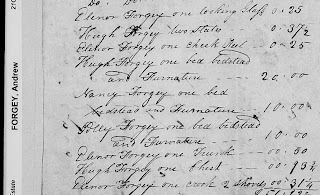 Do. Do.
Elenor Forgey one looking Glass 0.25
Hugh Forgey two Slates 0.37½
Elenor Forgey one check Reel 0.25
Hugh Forgey one bed bedstead
and Furnature 20.00
Nancy Forgey one bed
bedstead and Furnature 10.00
Polly Forgey one bed bedstead
and Furnature 10.00
Elenor Forgey one Trunk 00.50
Hugh Forgey one Chest
Elenor Forgey one
FORGEY, Andrew
Estate